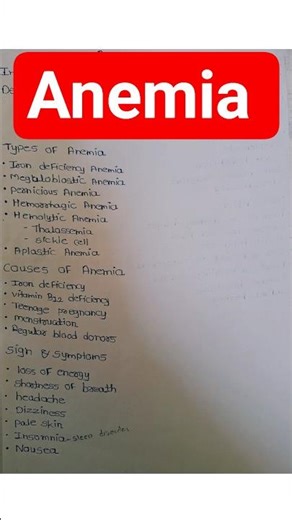 Anemia
Types of Anemia
• Iron deficiency Anemia
• Megaloblastic Anemia
• Pernicious Anemia
• Hemorrhagic Anemia
• Hemolytic Anemia
- Thalassemia
- sickle cell
• Aplastic Anemia
Causes of Anemia
• Iron deficiency
• vitamin B12 deficiency
• Teenage pregnancy
• menstruation
• Regular blood donors
Sign & Symptoms
• loss of energy
• shortness of breath
• headache
• Dizziness
• pale skin
• Insomnia - sleep disorder
• Nausea